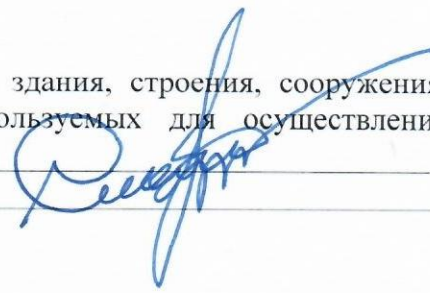 здания, строения, сооружения
ользуемых для осуществлени